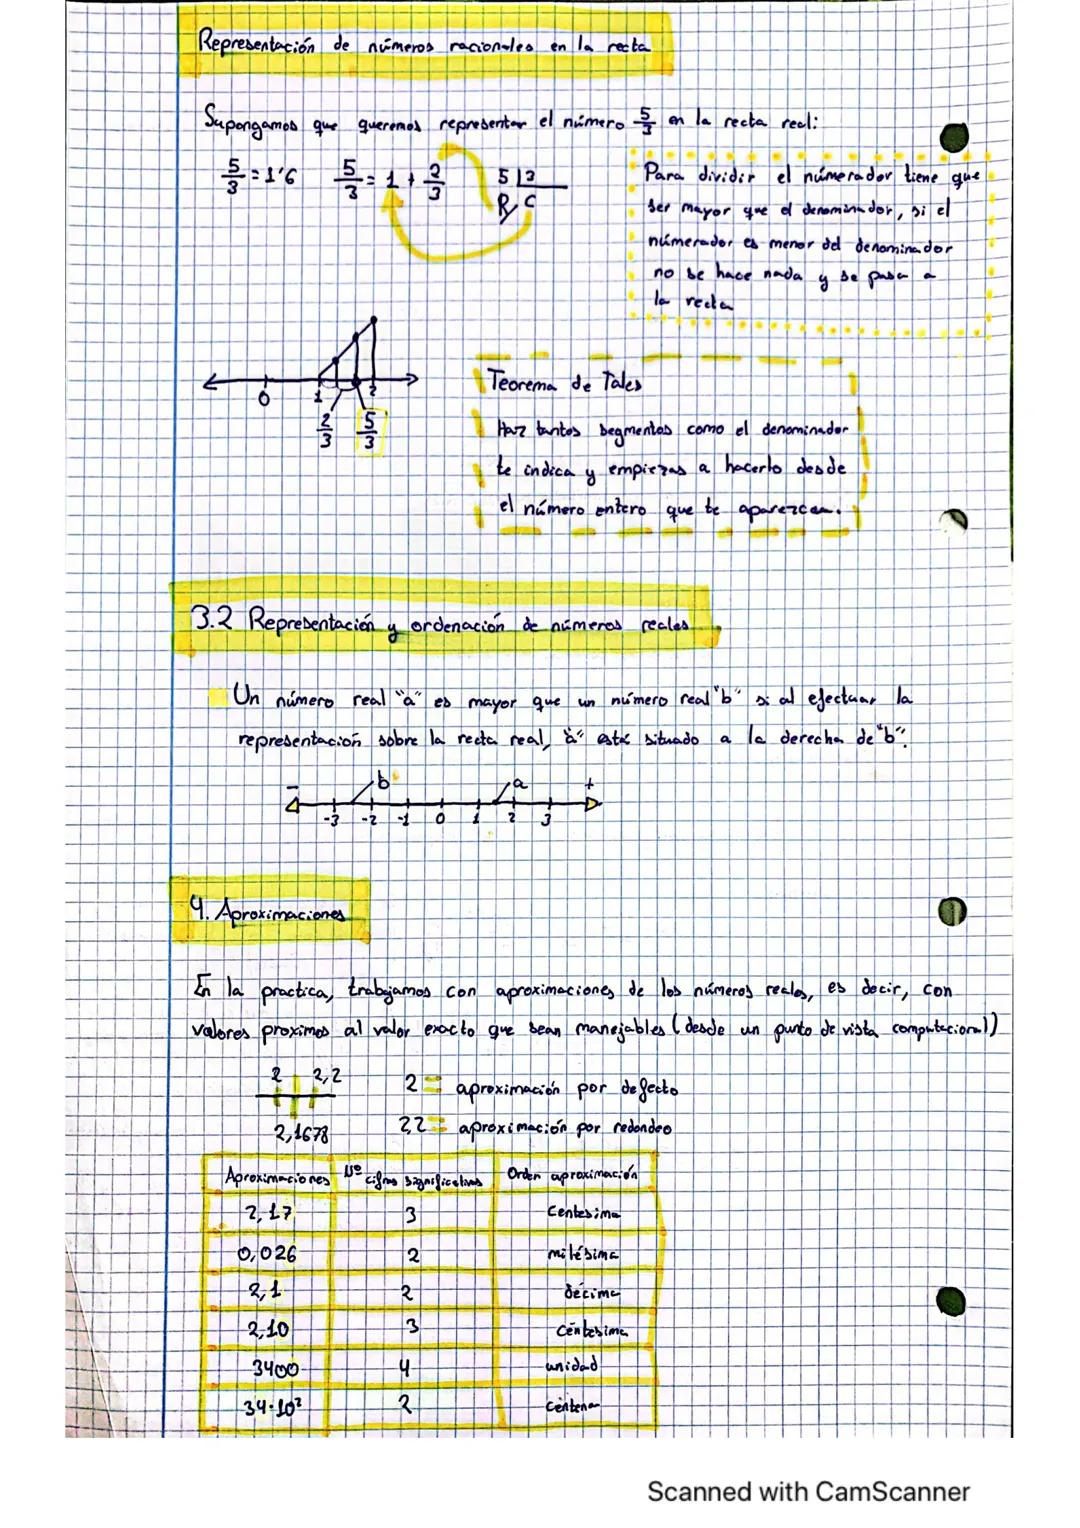 Representación de números racionales en la recta
Supongamos que queremos representar el número 5/3 en la recta real:
5/3 = 1'6 5/3 = 1 + 2/3 5 | 3
R C
Para dividir el númerador tiene que
ser mayor que el denominador, si el
númerador es menor del denominador
no se hace nada y se pasa a
la recta
0 1 2
2/3 5/3
Teorema de Tales
Haz tantos segmentos como el denominador
te indica y empiezas a hacerlo desde
el número entero que te aparezcan.
3.2 Representación y ordenación de números reales
Un número real "a" es mayor que un número real "b" si al efectuar la
representación sobre la recta real, "a" está situado a la derecha de "b".
- b a +
-3 -2 -1 0 1 2 3
4. Aproximaciones
En la practica, trabajamos con aproximaciones de los números reales, es decir, con
valores proximos al valor exacto que sean manejables (desde un punto de vista computacional)
2 2,2
2,1678
2 = aproximación por defecto
2,2 = aproximación por redondeo
Aproximaciones Nº cifras significativas Orden aproximación
2,17 3 Centesima
0,026 2 milésima
2,1 2 décima
2,10 3 Centesima
3400 4 unidad
34·10² 2 centena
Scanned with CamScanner